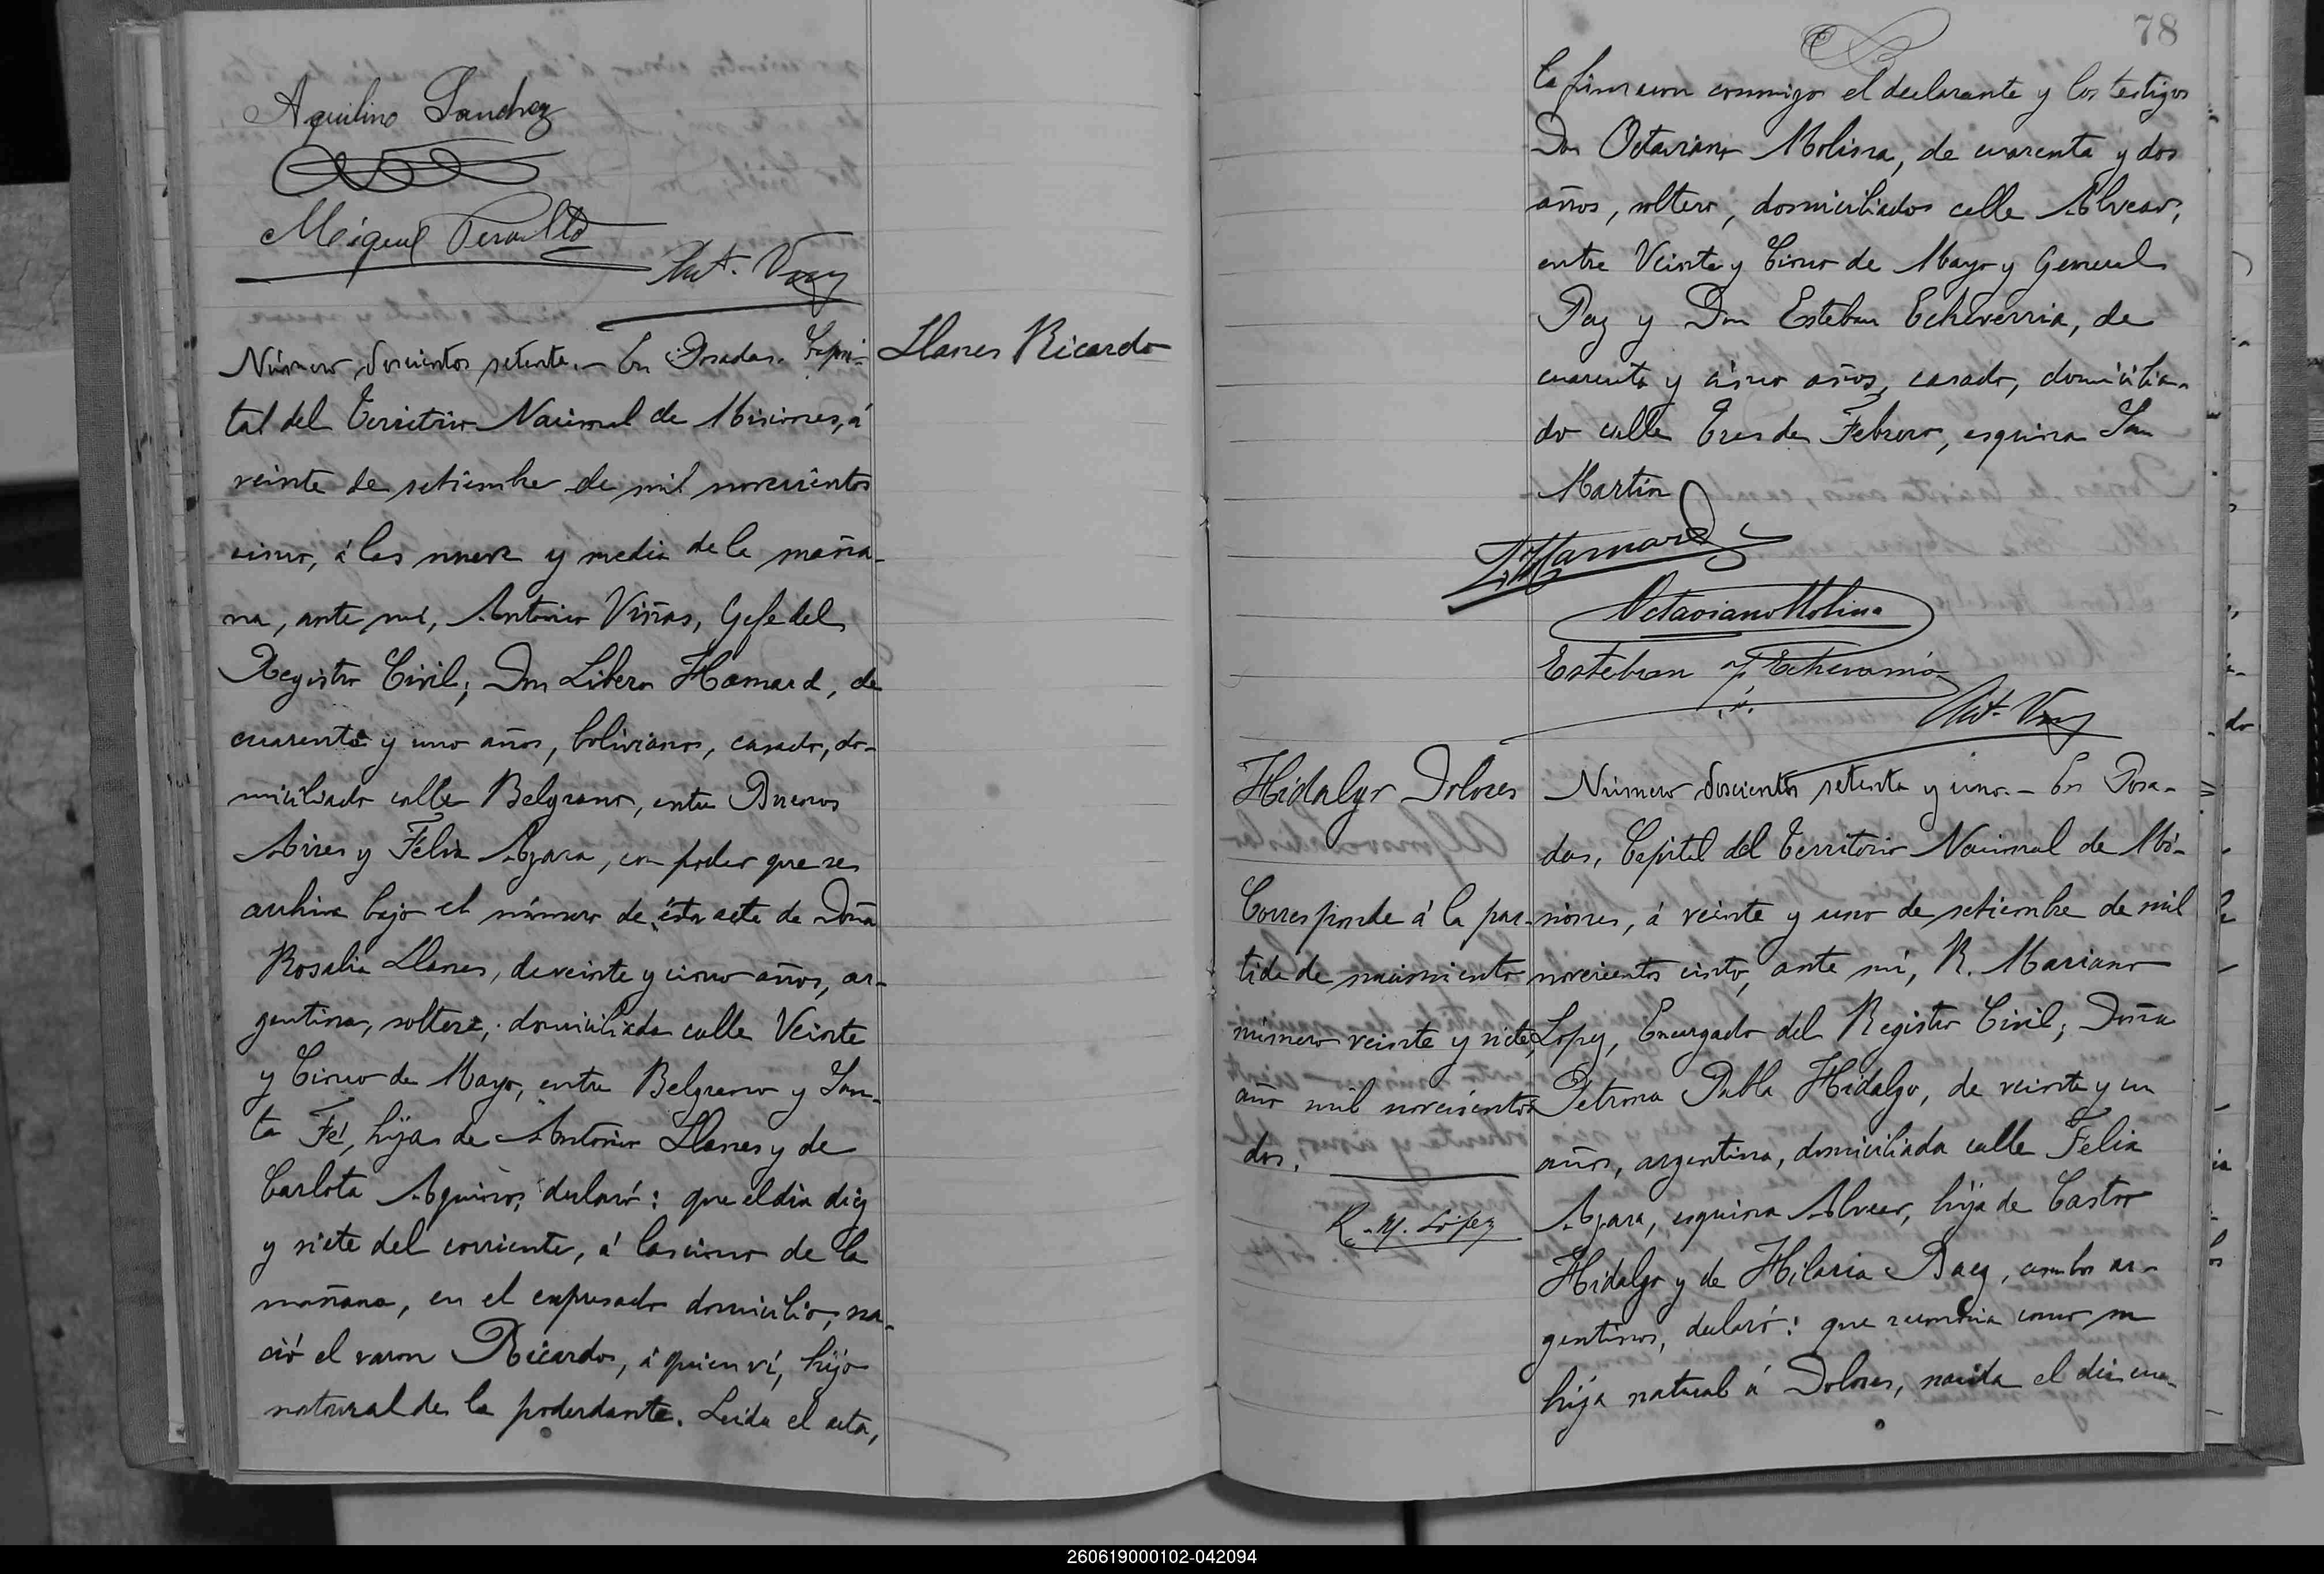 Aquilino Sanchez
Miguel Peralta
Ant. Viñas
Número doscientos setenta.- En Posadas. Capi-
tal del Territorio Nacional de Misiones, á
veinte de setiembre de mil novecientos
cinco, á las nueve y media de la maña-
na, ante mí, Antonio Viñas, Gefe del
Registro Civil; Don Libero Hamard, de
cuarenta y uno años, boliviano, casado, do-
miciliado calle Belgrano, entre Buenos
Aires y Felix Azara, con poder que se
archiva bajo el número de ésta acta de Doña
Rosalia Llanes, de veinte y cinco años, ar-
gentina, soltera, domiciliada calle Veinte
y Cinco de Mayo, entre Belgrano y San-
ta Fé, hija de Antonio Llanes y de
Carlota Aquino; declaró: que el dia diez
y siete del corriente, á las cinco de la
mañana, en el expresado domicilio, na-
ció el varon Ricardo, á quien ví, hijo
natural de la poderdante. Leida el acta,
Llanes Ricardo
78
la firmaron conmigo el declarante y los testigos
Don Octaviano Molina, de cuarenta y dos
años, soltero, domiciliados calle Alvear,
entre Veinte y Cinco de Mayo y General
Paz y Don Esteban Echeverria, de
cuarenta y cinco años, casado, domicilia-
do calle Tres de Febrero, esquina San
Martin
L. Hamard
Octaviano Molina
Esteban Echeverria
Ant. Viñas
Hidalgo Dolores
Corresponde á la par-
tida de nacimiento
número veinte y siete,
año mil novecientos
dos.
R. M. López
Número doscientos setenta y uno.- En Posa-
das, Capital del Territorio Nacional de Mi-
siones, á veinte y uno de setiembre de mil
novecientos cinco, ante mí, R. Mariano
Lopez, Encargado del Registro Civil; Doña
Petrona Pabla Hidalgo, de veinte y un
años, argentina, domiciliada calle Felix
Azara, esquina Alvear, hija de Castro
Hidalgo y de Hilaria Baez, ambos ar-
gentinos, declaró: que reconocia como su
hija natural á Dolores, nacida el dia cua-
260619000102-042094